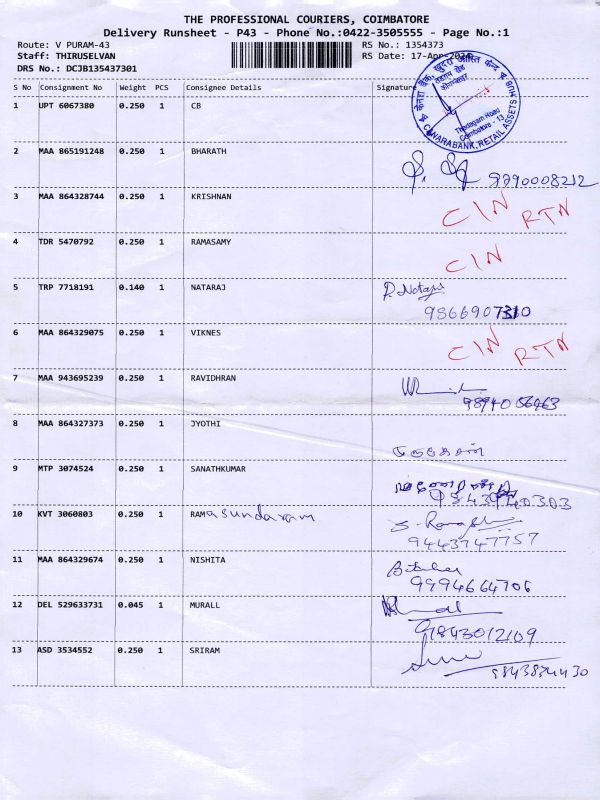 THE PROFESSIONAL COURIERS, COIMBATORE
Delivery Runsheet - P43 - Phone No.:0422-3505555 - Page No.:1
Route: V PURAM-43 RS No.: 1354373
Staff: THIRUSELVAN RS Date: 17-Apr-2024
DRS No.: DCJB135437301
S No Consignment No Weight PCS Consignee Details Signature
1 UPT 6067380 0.250 1 CB
Thadagam Road
Coimbatore - 13
CANARABANK, RETAIL ASSETS HUB
2 MAA 865191248 0.250 1 BHARATH
9790008212
3 MAA 864328744 0.250 1 KRISHNAN CIN RTN
4 TDR 5470792 0.250 1 RAMASAMY CIN
5 TRP 7718191 0.140 1 NATARAJ P. Nataraj
9866907310
6 MAA 864329075 0.250 1 VIKNES CIN RTN
7 MAA 943695239 0.250 1 RAVIDHRAN
9894006463
8 MAA 864327373 0.250 1 JYOTHI
9 MTP 3074524 0.250 1 SANATHKUMAR
10 KVT 3060803 0.250 1 RAMasundaram
9443747757
11 MAA 864329674 0.250 1 NISHITA
9994664706
12 DEL 529633731 0.045 1 MURALL
9843012109
13 ASD 3534552 0.250 1 SRIRAM
9843834430